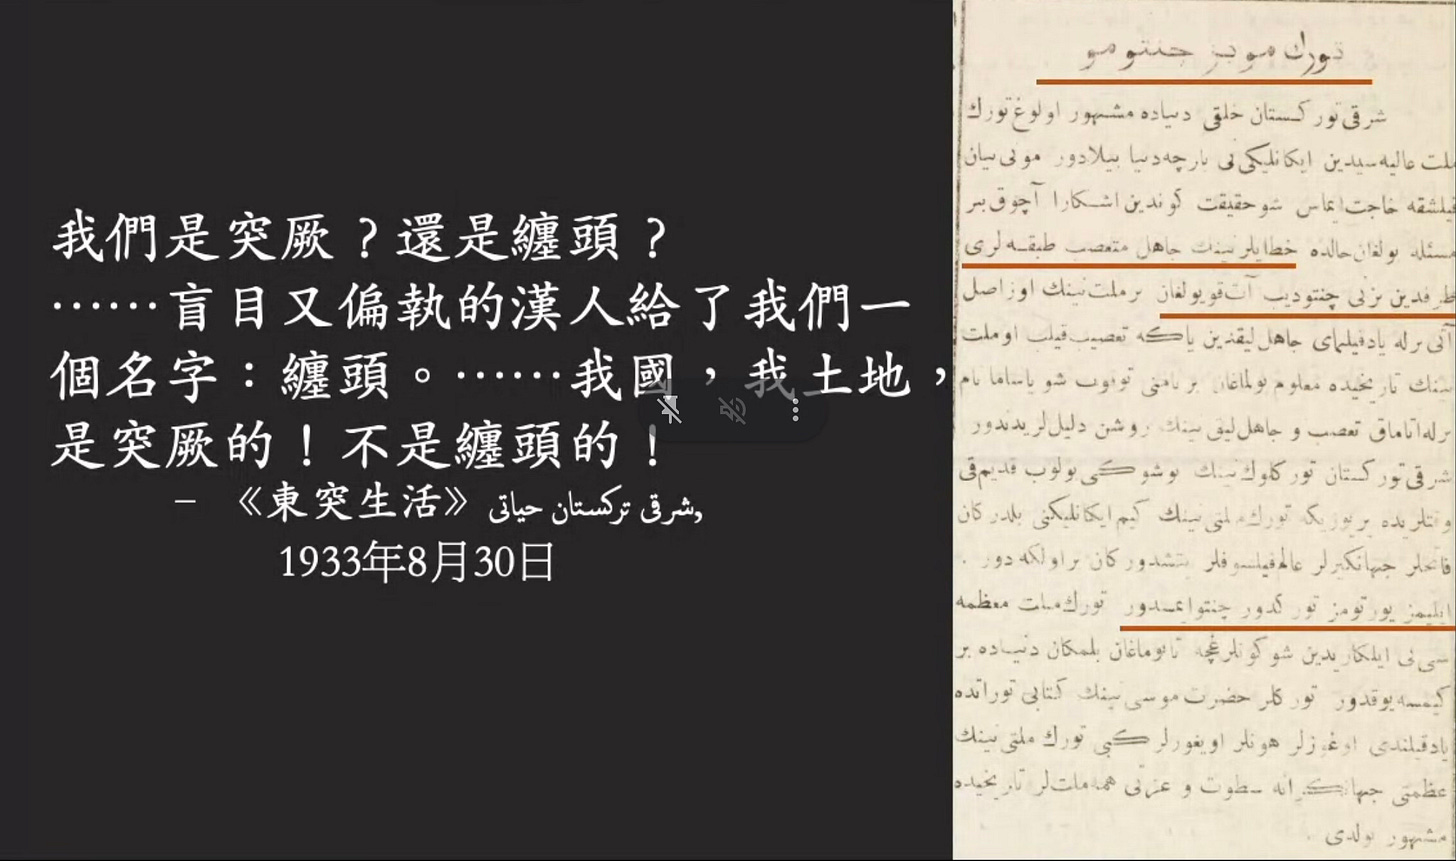 我們是突厥？還是纏頭？
……盲目又偏執的漢人給了我們一
個名字：纏頭。……我國，我土地，
是突厥的！不是纏頭的！
– 《東突生活》شرقی ترکستان حیاتی,
1933年8月30日
تورك مو بز چنتو مو
شرقی تورکستان خلقی دنیاده مشهور اولوغ تورك
ملت عالیه‌سیدین ایکانلیکی‌نی بارچه دنیا بیلادور مونی بیان
قیلشقه حاجت ایماس شو حقیقت کوندین اشکارا آچوق بر
مسئله بولغان حالده خطایلر نینك جاهل متعصب طبقه لری
طرفدین بزنی چنتو دیب آت قویولغان بر ملت نینك اوز اصل
آتی برله یاد قیلمای جاهل لیقدین یاکه تعصب قیلب او ملت
نینك تاریخیده معلوم بولماغان بر نامنی توقوب شو یاساما نام
برله اتاماق تعصب و جاهل لیق نینك روشن دلیل لریدندور
شرقی تورکستان تورکلوك نینك بوشوکی بولوب قدیم‌قی
وقتلریده بر یوزیکه تورك ملتی نینك کیم ایکانلیکنی بلدرکان
فاتحلر جهانکیرلر عالم فیلسوفلر یتشدورکان بر اولکه دور .
ایلیمز یورتومز تورکدور چنتو ایمسدور تورك ملت معظمه
سی نی ایلکاریدین شو کونلرغچه تانوماغان بلمکان دنیاده بر
کیمسه یوقدور تورکلر حضرت موسی نینك کتابی توراتده
یاد قیلندی اوغوزلر هونلر اویغورلر کبی تورك ملتی نینك
عظمتی جهانکیرانه سطوت و عزتی همه ملت لر تاریخیده
مشهور بولدی .